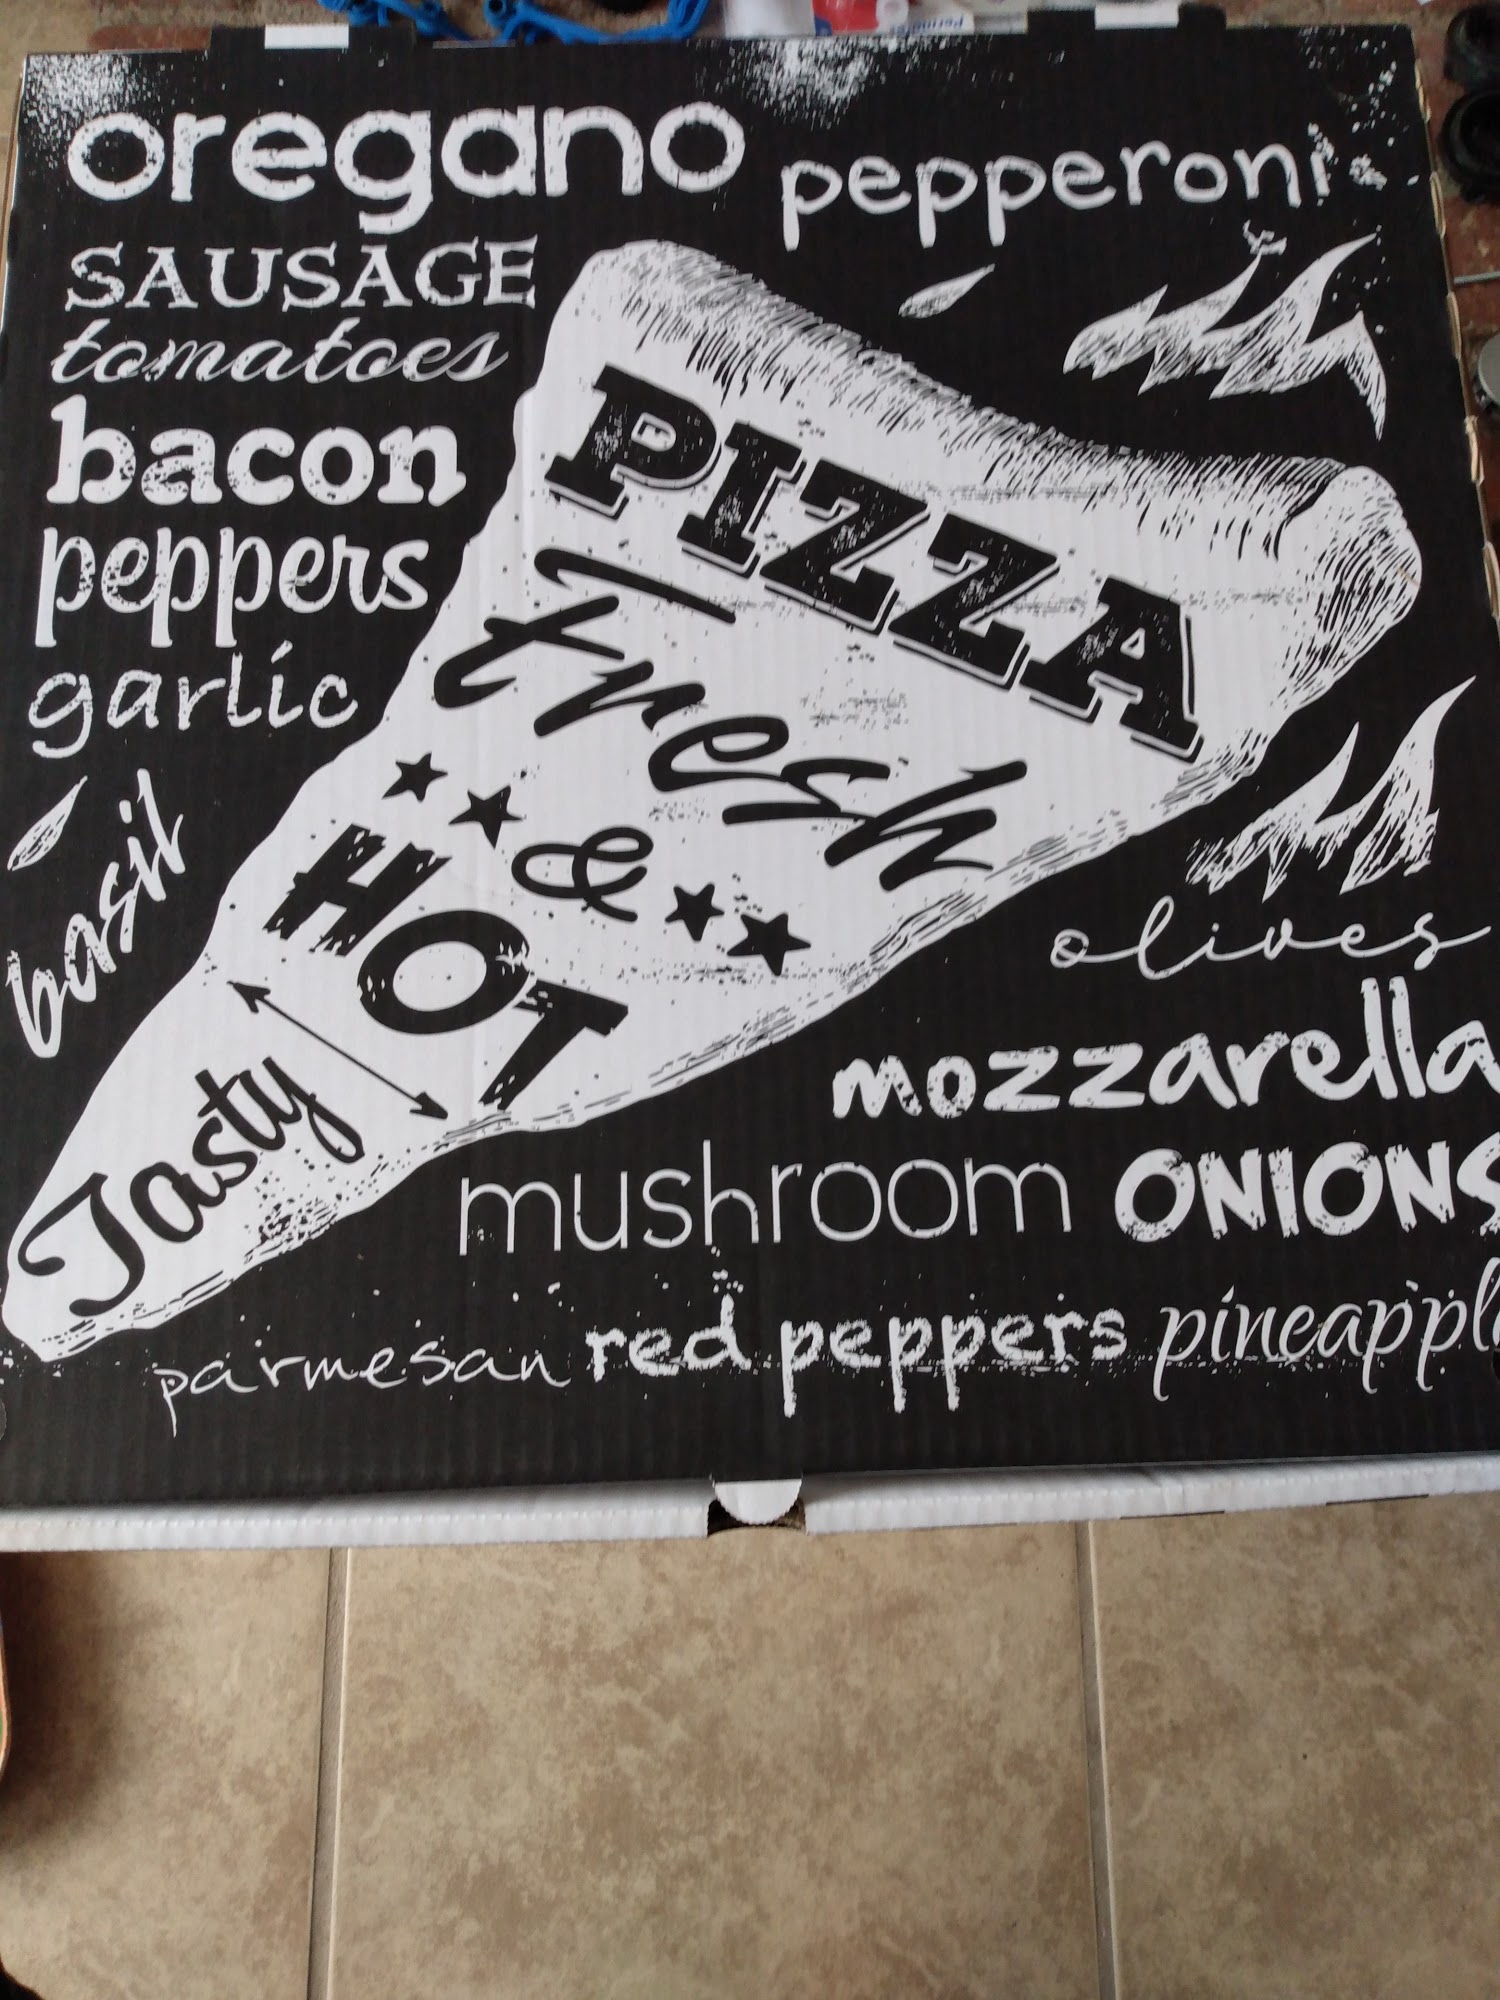 oregano pepperoni
SAUSAGE
tomatoes
bacon
peppers
garlic
basil
PIZZA
Fresh
&
HOT
Tasty
olives
mozzarella
mushroom ONIONS
parmesan red peppers pineappl